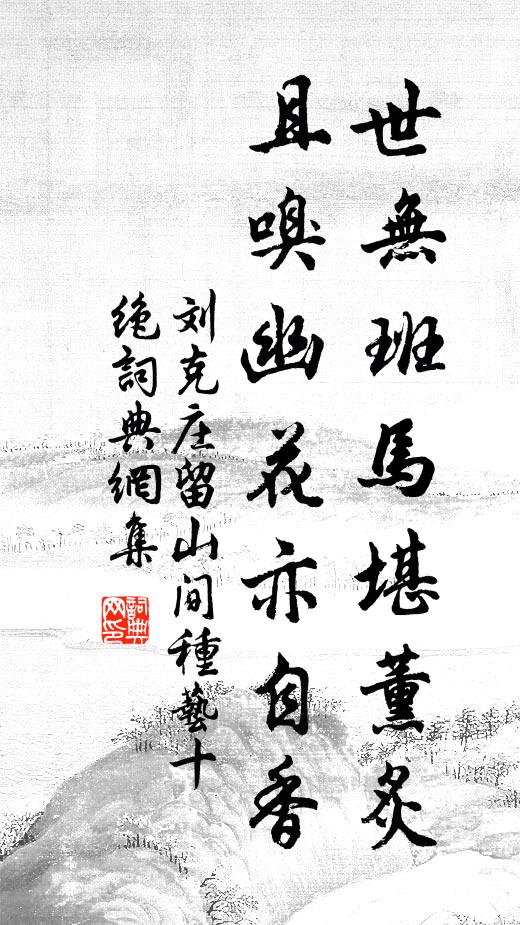 世無班馬堪薰炙
且嗅幽花亦自香
刘克庄留山间種藝十
绝詞典網集
詞典
网印